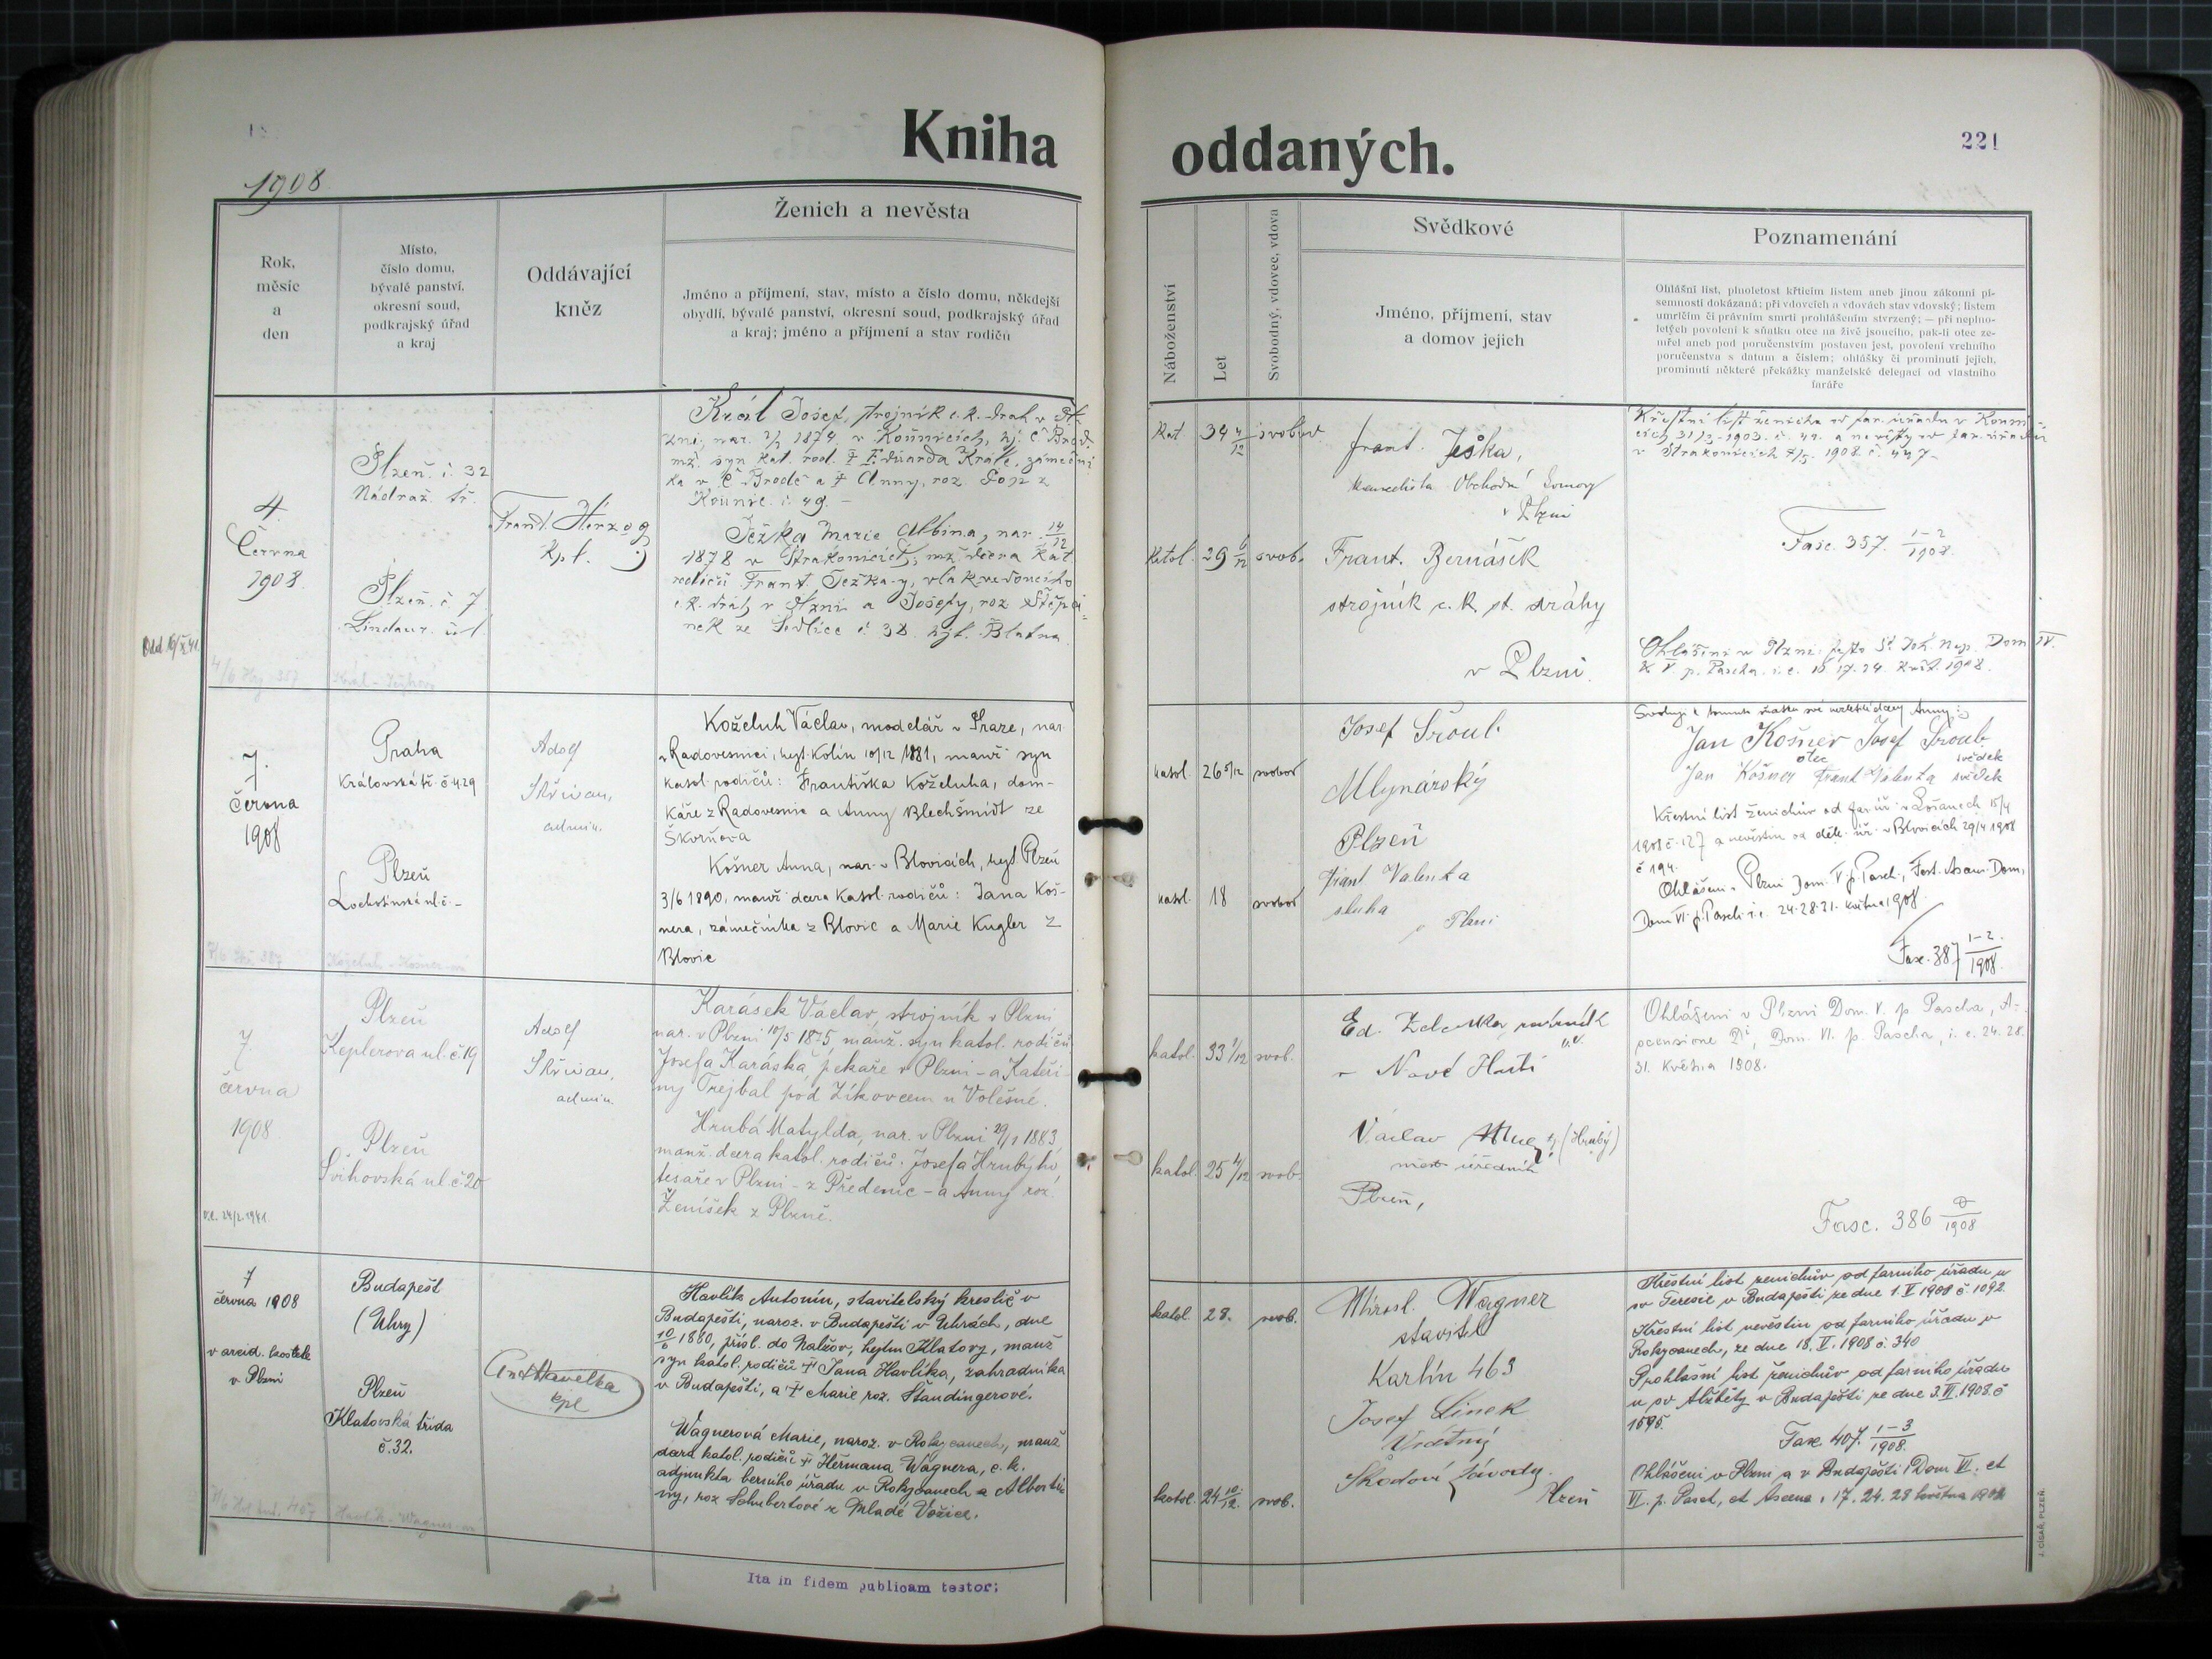 Kniha oddaných.
221
1908
Rok,
měsíc
a
den
Místo,
číslo domu,
bývalé panství,
okresní soud,
podkrajský úřad
a kraj
Oddávající
kněz
Ženich a nevěsta
Jméno a příjmení, stav, místo a číslo domu, někdejší
obydlí, bývalé panství, okresní soud, podkrajský úřad
a kraj; jméno a příjmení a stav rodičů
Náboženství
Let
Svobodný, vdovec, vdova
Svědkové
Jméno, příjmení, stav
a domov jejich
Poznamenání
Ohlášní list, plnoletost křticím listem aneb jinou zákonní pí-
semností dokázaná; při vdovcích a vdovách stav vdovský; listem
umrlčím či právním smrti prohlášením stvrzený; — při neplno-
letých povolení k sňatku otce na živě jsoucího, pak-li otec ze-
mřel aneb pod poručenstvím postaven jest, povolení vrchního
poručenstva s datum a číslem; ohlášky či prominutí jejich,
prominutí některé překážky manželské delegací od vlastního
faráře
4.
Června
1908.
Plzeň. č. 32
Nádraž. tř.
Plzeň. č. 7
Lindaur. ul.
Frant. Herzog
kpl.
Král Josef, strojník c. k. drah v Pl-
zni, nar. 1874 v Kounicích, hj. Č. Brod
mž. syn kat. rod. † Eduarda Krále, zámeční
ka v Č. Brodě a † Anny, roz.
Kounic č. 49. -
Ježka Marie Albina, nar. 14/12
1878 v Strakonicích; mž. dcera kat.
rodičů Frant. Ježka-y, vlakvedoucího
c. k. dráh v Plzni a Josefy, roz. Štěpá-
nek ze Sedlice č. 38 hjt. Blatna.
Kat. 34 svobod
Katol. 29 svob.
Frant. Ješka,
Obchodní komory
v Plzni
Frant. Bernášek
strojník c. k. st. dráhy
v Plzni.
Křestní list ženicha od far. úřadu v Kouni-
cích 31/3 1903. č. 42. a nevěsty od far. úřadu
v Strakonicích 1908 č. 447-
Fasc. 357. 1-2/1908.
Ohlášeni v Plzni, Jan. Nep. Dom IV.
& V. p. Pascha. i. e. 17. 24. Květ. 1908.
7.
června
1908
Praha
Královská tř. č. 429
Plzeň
Lochotínská ul. č. -
Adolf
Skřivan,
admin.
Koželuh Václav, modelář v Praze, nar.
v Radovesnici, hejt. Kolín 10/12 1881, manž. syn
katol. rodičů: Františka Koželuha, dom-
káře z Radovesnic a Anny Blechšmidt ze
Škorňova
Košner Anna, nar. v Blovicích, hejt. Plzeň
3/6 1890, manž. dcera katol. rodičů: Jana Koš-
nera, zámečníka z Blovic a Marie Kugler z
Blovic
katol. 26 5/12 svobod
katol. 18 svobod
Josef Šroub
Mlynářský
Plzeň
Frant. Valenta
sluha
v Plzni
Svoluji k tomuto sňatku své nezletilé dcery Anny:
Jan Košner Josef Šroub
otec svědek
Jan Košner Frant Valenta svědek
Křestní list ženichův od far. úř. v Lošanech 15/4
1908 č. 127 a nevěstin od děk. úř. v Blovicích 29/4 1908
č 194.
Ohlášeni v Plzni Dom. V. p. Pasch., Fest. Ascens. Dom.,
Dom VI. p. Pasch. i. e. 24. 28. 31. května 1908.
Fasc. 387 1-2./1908.
7.
června
1908
Plzeň
Keplerova ul. č. 19
Plzeň
Švihovská ul. č. 20
Adolf
Skřivan,
admin.
Karásek Václav, strojník v Plzni
nar. v Plzni 10/5 1875, manž. syn katol. rodičů
Josefa Karáska, pekaře v Plzni - a Kateři-
ny Trejbal pod Žíkovcem u Volešné.
Hrubá Matylda, nar. v Plzni 29/1 1883
manž. dcera katol. rodičů: Josefa Hrubýho
tesaře v Plzni - z Předenic - a Anny roz.
Ženíšek z Plzně.
v. l. 24/2. 1941.
katol. 33 1/12 svob.
katol. 25 4/12 svob.
Ed.
v Nové Huti
Václav (Hrubý)
úředník
Plzeň,
Ohlášeni v Plzni Dom. V. p. Pascha, A-
scensione Di, Dom. VI. p. Pascha, i. e. 24. 28.
31. května 1908.
Fasc. 386 /1908
7
června 1908
v arcid. kostele
v Plzni
Budapešt
(Uhry)
Plzeň
Klatovská třída
č. 32.
Ant Havelka
kpl
Havlík Antonín, stavitelský kreslič v
Budapešti, naroz. v Budapešti v Uhrách, dne
10/6 1880, přísl. do Nalžov, hejtm Klatovy, manž
syn katol. rodičů † Jana Havlíka, zahradníka
v Budapešti, a † Marie roz. Standingerové.
Wagnerová Marie, naroz. v Rokycanech, manž
dcera katol. rodičů † Heřmana Wagnera, c. k.
adjunkta berního úřadu v Rokycanech a Alberti-
ny, roz Schubertové z Mladé Vožice.
katol. 28. svob.
katol. 24 10/12 svob.
Mirosl. Wagner
stavitel
Karlín 463
Josef Linek
Vrátný
Škodovi závody.
Plzeň
Křestní list ženichův od farního úřadu u
sv Teresie v Budapešti ze dne 1. V 1908 č. 1092.
Křestní list nevěstin od farního úřadu v
Rokycanech, ze dne 18. V. 1908 č. 340
Prohlašní list ženichův od farního úřadu
u sv Alžběty v Budapešti ze dne 3. VI. 1908. č
1595.
Fasc 407. 1-3/1908.
Ohlášeni v Plzni a v Budapešti Dom VI. et
VI. p. Pasch, et Ascens. 17. 24. 28 května 1908
Ita in fidem publicam testor:
J. CÍSAŘ, PLZEŇ.